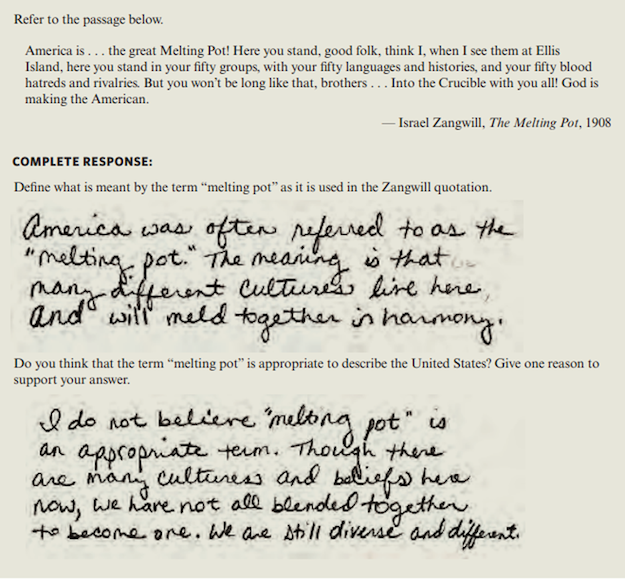 Refer to the passage below.
America is . . . the great Melting Pot! Here you stand, good folk, think I, when I see them at Ellis
Island, here you stand in your fifty groups, with your fifty languages and histories, and your fifty blood
hatreds and rivalries. But you won't be long like that, brothers . . . Into the Crucible with you all! God is
making the American.
— Israel Zangwill, The Melting Pot, 1908
COMPLETE RESPONSE:
Define what is meant by the term “melting pot” as it is used in the Zangwill quotation.
America was often referred to as the
"melting pot." The meaning is that
many different cultures live here,
and will meld together in harmony.
Do you think that the term “melting pot” is appropriate to describe the United States? Give one reason to
support your answer.
I do not believe "melting pot" is
an appropriate term. Though there
are many culturess and beliefs here
now, we have not all blended together
to become one. We are still diverse and different.